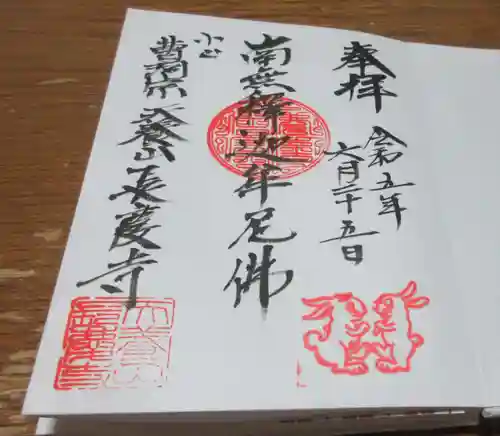 奉拝
令和五年
六月二十五日
南無釋迦牟尼佛
小山
曹洞宗 天養山 長慶寺